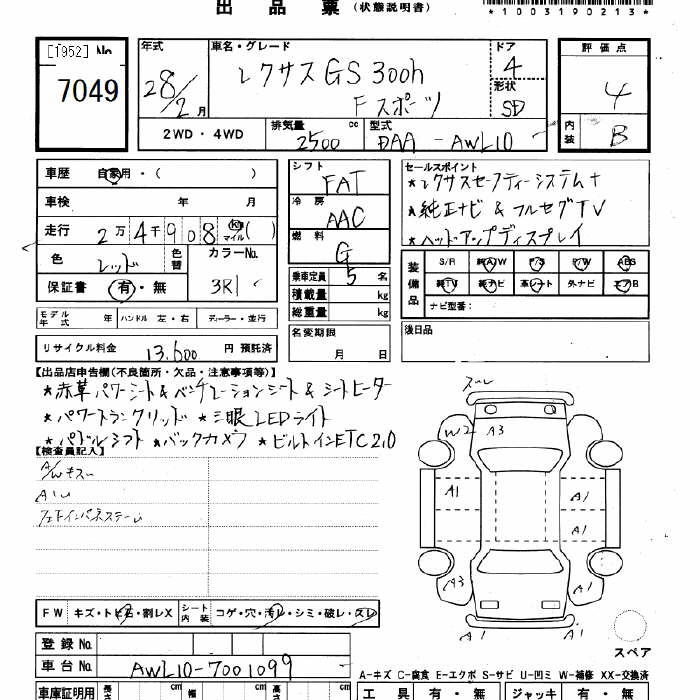 出 品 票 (状態説明書)
*1003190213*
[1952] No.
7049
年式
28/2月
車名・グレード
レクサス GS 300h
Fスポーツ
ドア
4
形状
SD
評 価 点
4
内装
B
2WD・4WD
排気量 cc
2500
型式
DAA-AWL10
車歴 自家用・( )
車検 年 月
走行 2万4千908 km マイル ( )
色 レッド 色替
カラーNo.
3R1
保証書 有・無
シフト
FAT
冷房
AAC
燃料
G
乗車定員 5 名
積載量 kg
総重量 kg
セールスポイント
★レクサスセーフティーシステム+
★純正ナビ & フルセグTV
★ヘッドアップディスプレイ
装備品
S/R 純A/W P/S P/W ABS
純TV 純ナビ 革シート 外ナビ エアB
ナビ型番:
モデル年式 年 ハンドル 左・右 ディーラー・並行
名変期限
月 日
後日品
リサイクル料金 13,600 円 預託済
【出品店申告欄(不良箇所・欠品・注意事項等)】
★赤革パワーシート&ベンチレーションシート&シートヒーター
★パワートランクリッド ★三眼LEDライト
★パドルシフト ★バックカメラ ★ビルトインETC2.0
【検査員記入】
A/Wキズレ
スレ
W2 A3
A1 A1
A1
A3 A1
A1 A1
スペア
FW キズ・トビ石・割レX
シート内装 コゲ・穴・汚レ・シミ・破レ・スレ
登録 No.
車台 No. AWL10-7001099
A-キズ C-腐食 E-エクボ S-サビ U-凹ミ W-補修 XX-交換済
車庫証明用 長さ cm 幅 cm 高さ cm
工 具 有・無 ジャッキ 有・無